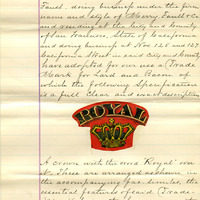 Faull. doing business under the firm
name and style of Merry, Faull & Co.
and residing at the City and County
of San Francisco, State of California
and doing business at Nos 125 and 127
California Street in said City and County
have adopted for our use a Trade
Mark for Lard and Bacon of
which the following Specification
is a full Clear and exact description
ROYAL
A crown with the word "Royal" over
it. These are arranged as shown in
the accompanying fac-similes, the
essential features of said (Trade